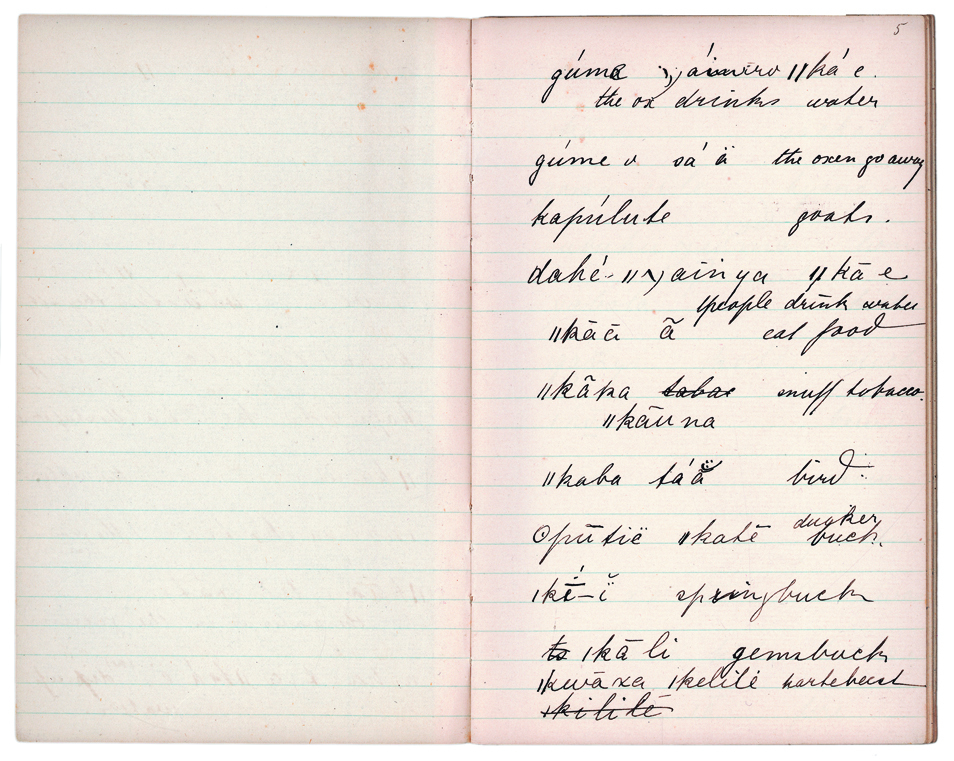 5
gúme ǁká e.
the ox drinks water
gúme o sá ä the oxen go away
kapúlute goats.
dahé- ainya ǁkā e
people drink water
ǁkāā ã eat food
ǁkãka ~~tabac~~ snuff tobacco.
ǁkāuna
ǁkaba bird.
ʘpūtië ǁkatē duyker
buck.
springbuck
~~to~~ ǀkā li gemsbuck
ǁkwāxa ǀkelilé hartebeest
~~ǀkililé~~